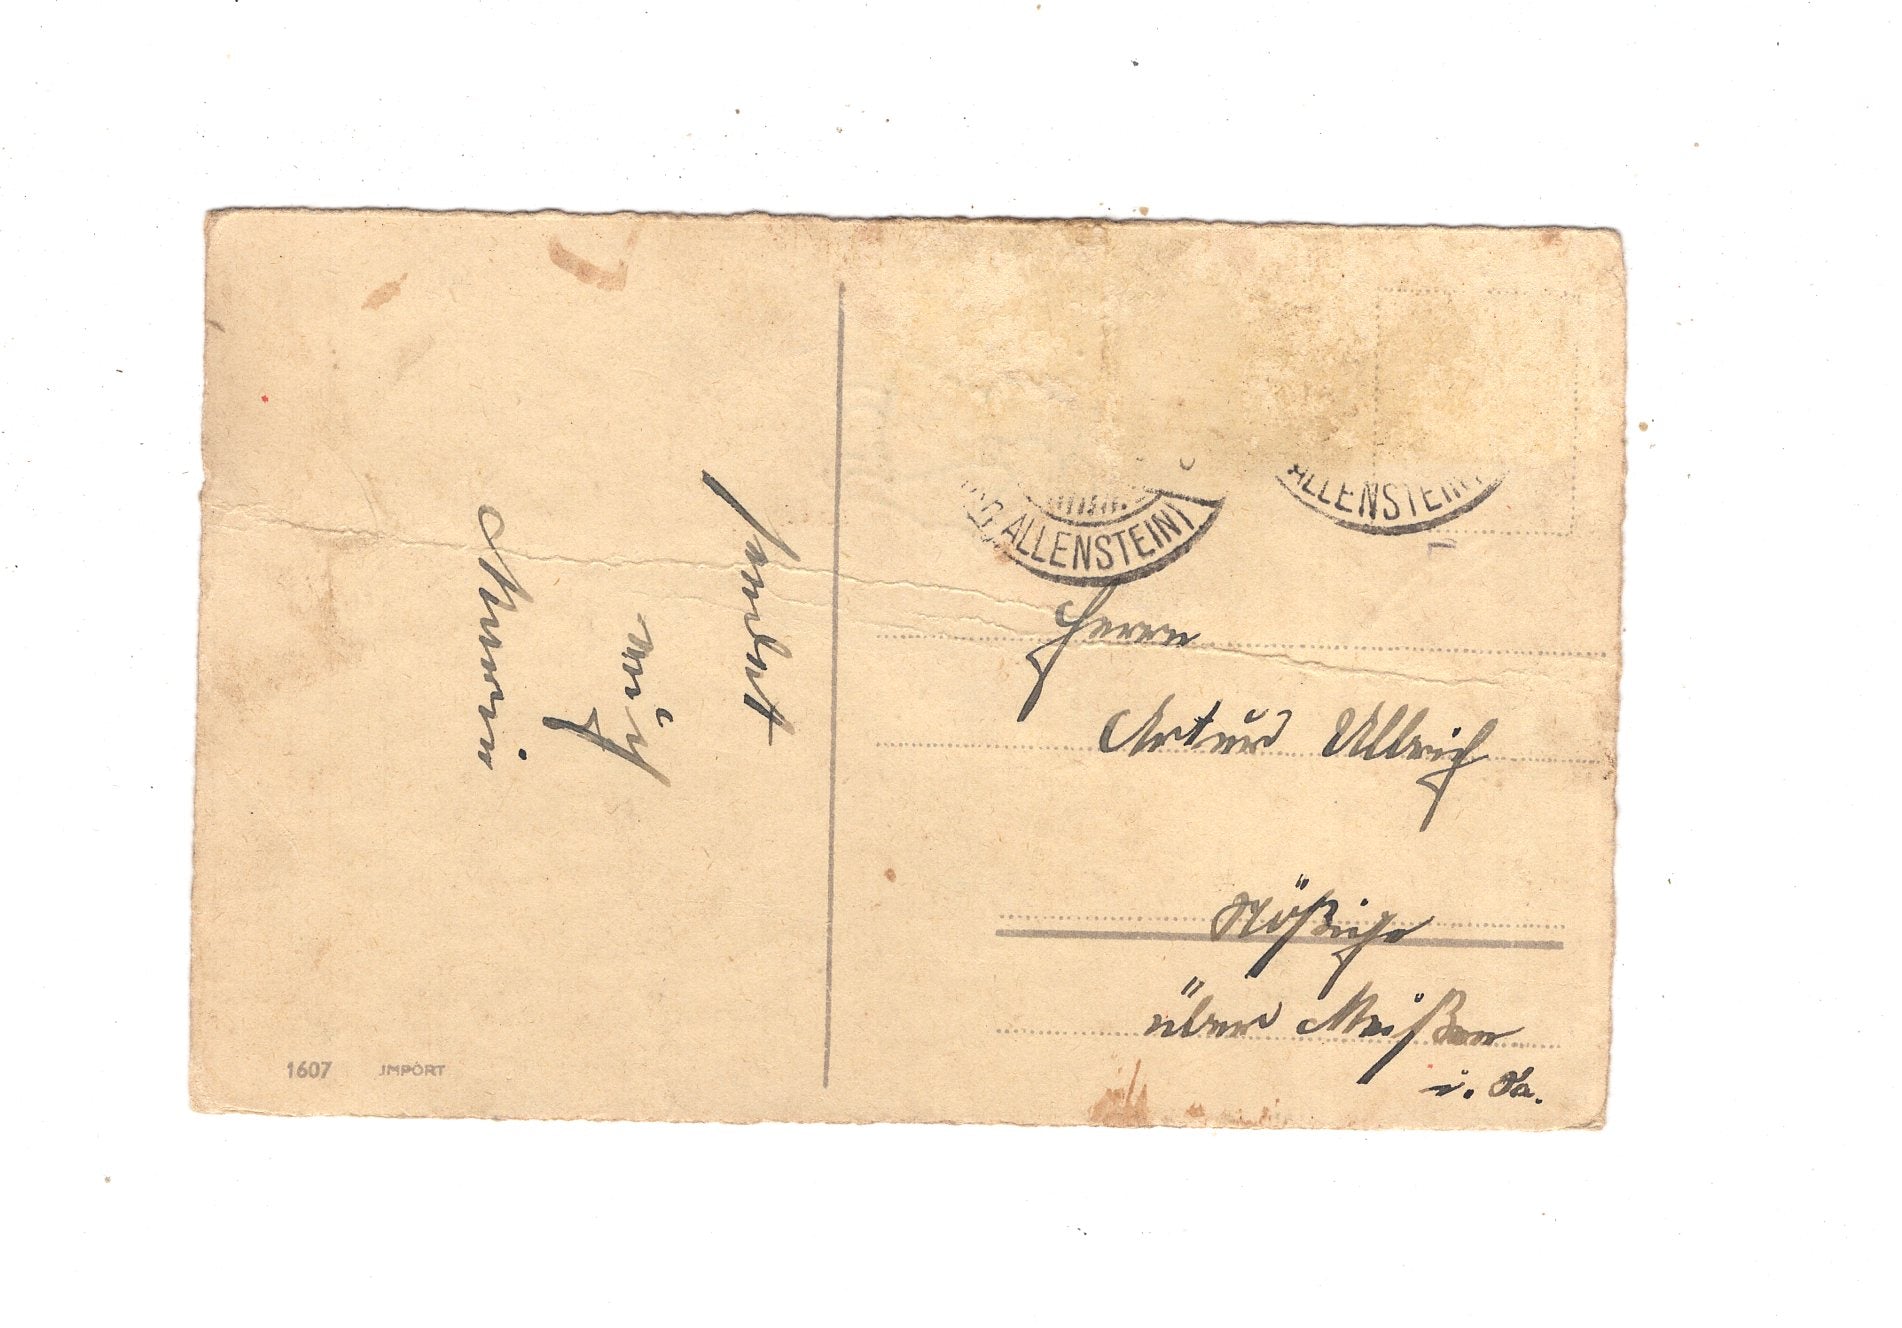 sendet
euch
Marie
ALLENSTEIN)
ALLENSTEIN)
Herrn
Artur Ullrich
über Meißen
i. Sa.
1607 IMPORT